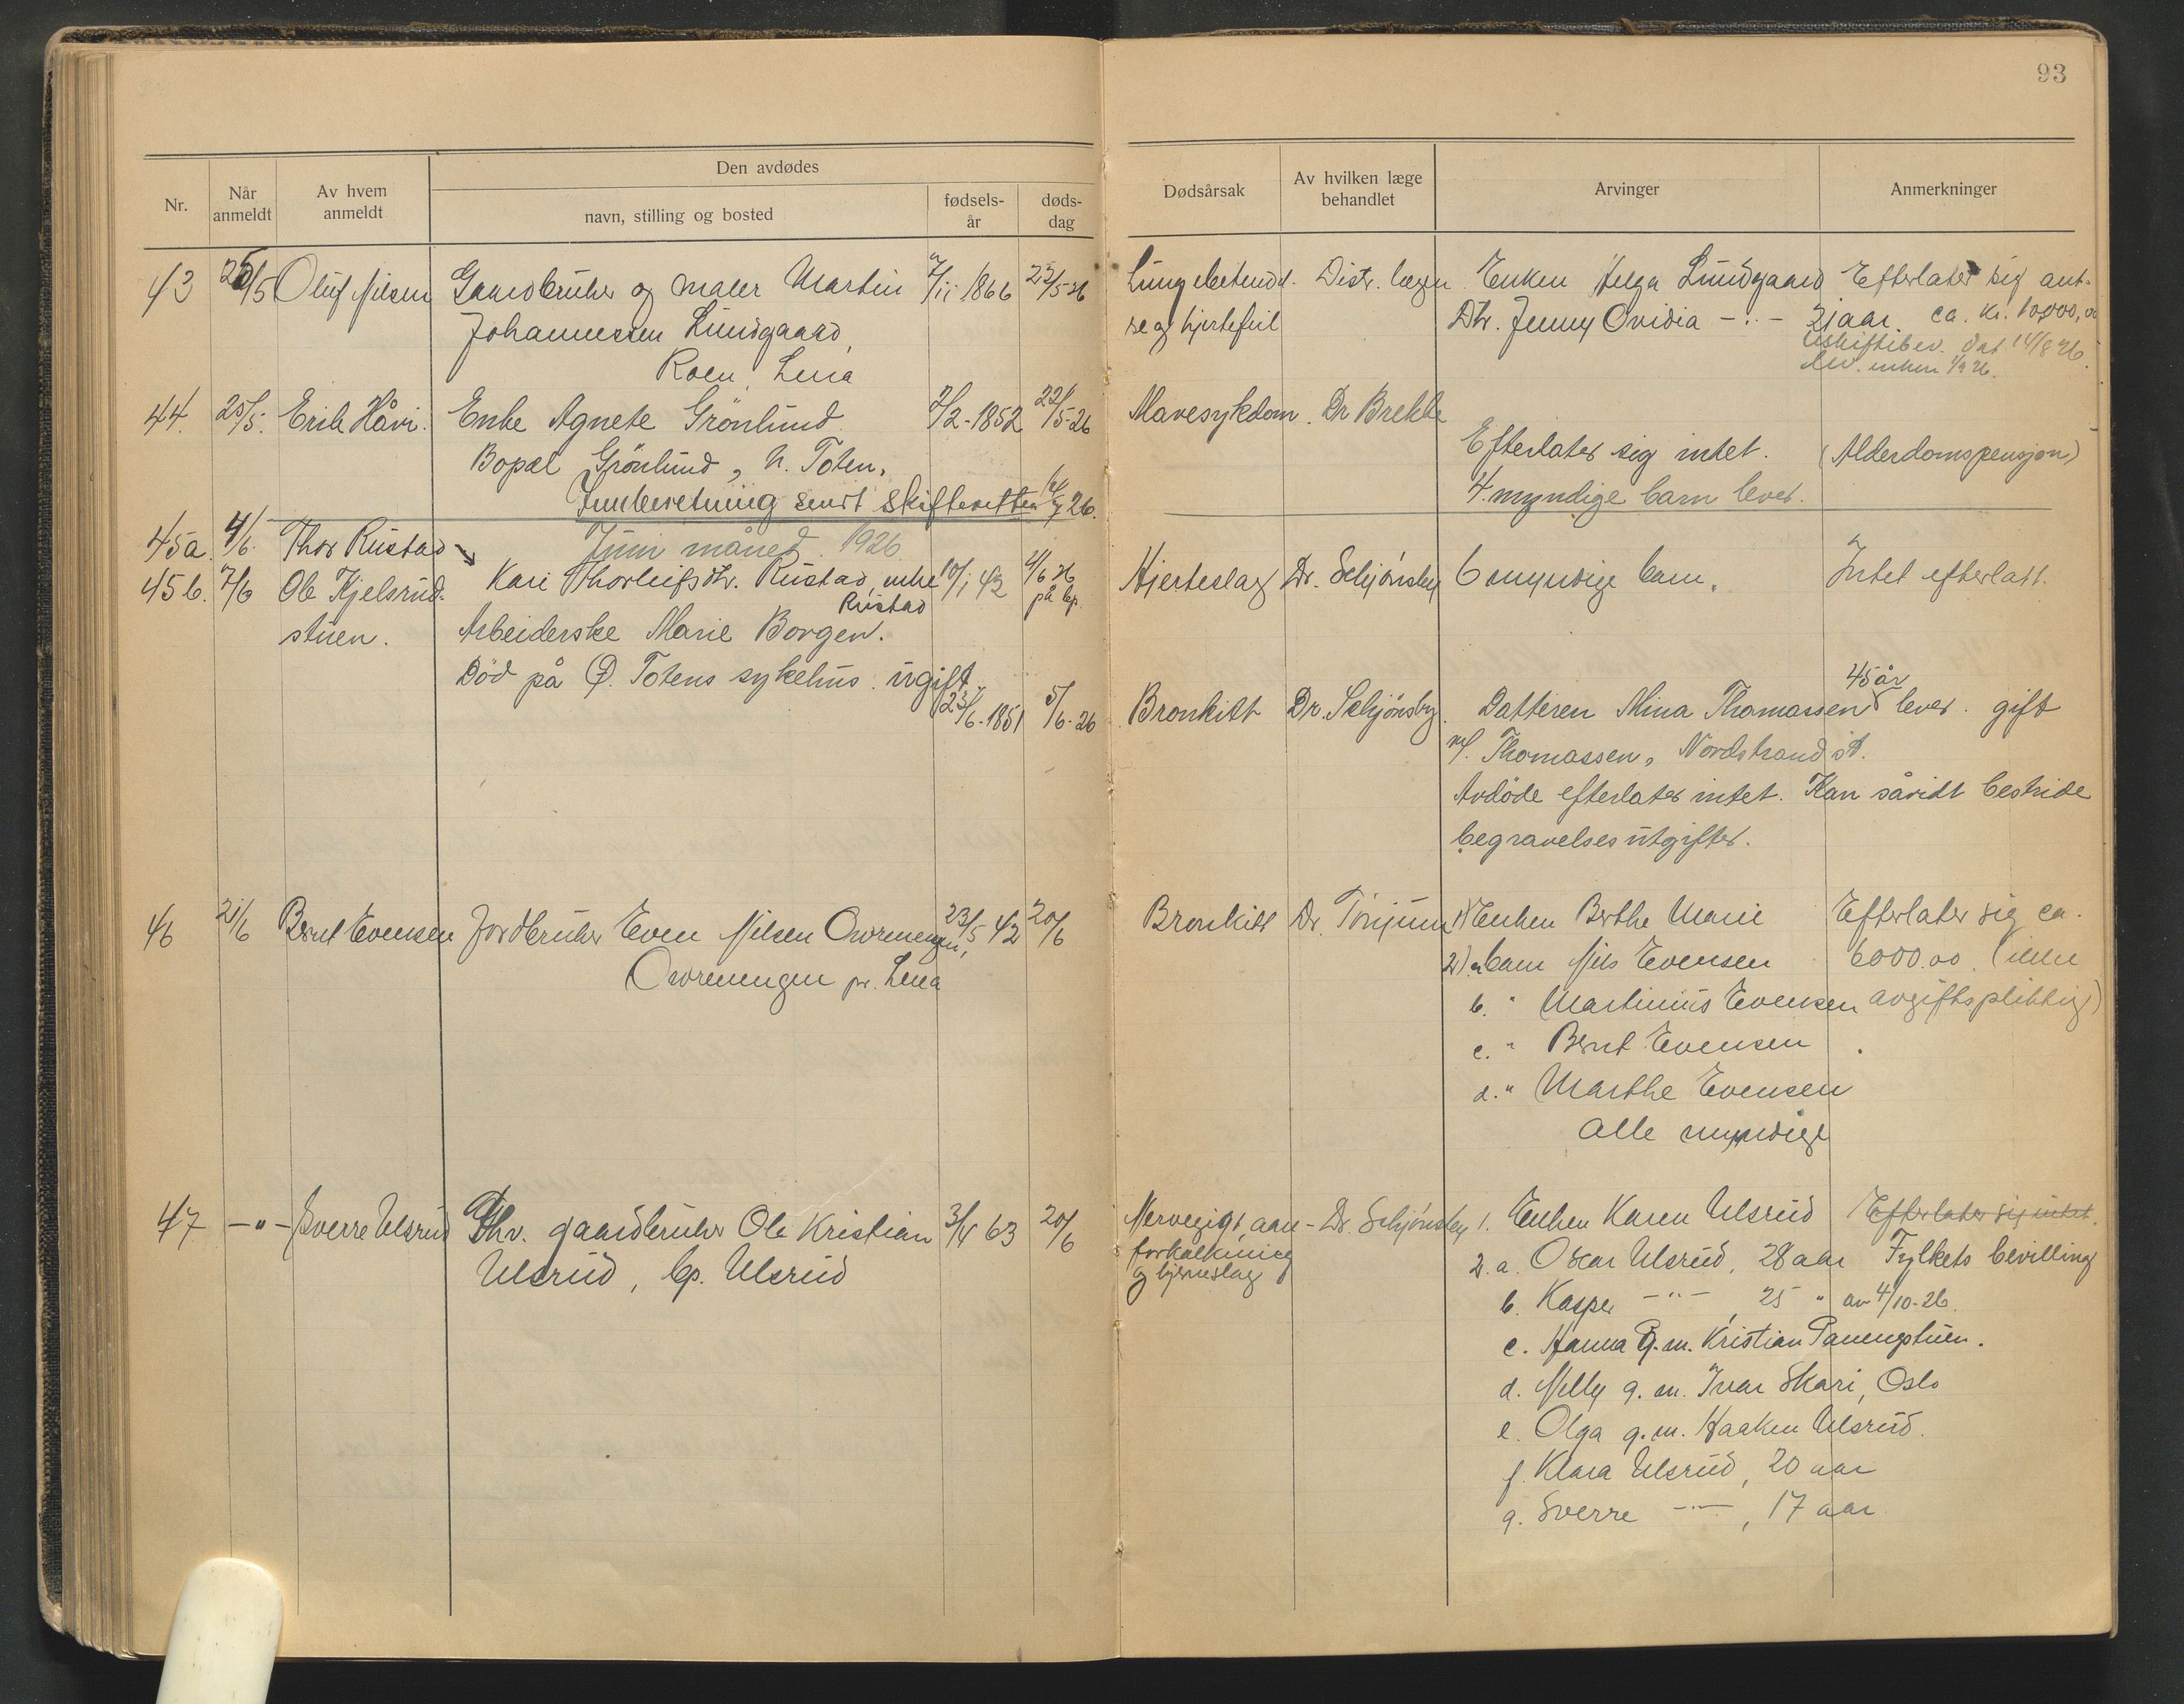 93
Nr.
Når anmeldt
Av hvem anmeldt
Den avdødes
navn, stilling og bosted
fødsels-
år
døds-
dag
Dødsårsak
Av hvilken læge
behandlet
Arvinger
Anmerkninger
43 25/5 Oluf Nilsen Gaardbruker og maler Martin 7/11 1866 23/5-26 Lungebetend. Distr. lægen Enken Helga Lundgaard Efterlater sig ant.
Johannessen Lundgaard, og hjertefeil Dtr. Jenny Ovidia -"- 21 aar. ca. kr. 10,000,00
Roen, Lena Uskiftebev. dat 14/8 26.
lev. enken 1/9 26.
44. 25/5. Erik Håvi. Enke Agnete Grönlund. 7/2-1852 22/5-26 Mavesykdom. Dr Brekke
Bopæl Grönlund, V. Toten. Efterlater sig intet. (Alderdomspensjon)
Innberetning sendt skifteretten 26. 4 myndige barn lever.
45a 4/6. Thor Rustad Juni måned. 1926
45b. 7/6 Ole Kjelsrud- Kari Thorleifsdtr. Rustad, enke 42 4/6 26 Hjerteslag Dr. Schjónsby 6 myndige barn. Intet efterlatt.
Rustad på bp.
stuen. Arbeiderske Marie Borgen.
Död på Ø. Totens sykehus. ugift
45 år
23/6-1851 5/6-26 Bronkitt Dr. Schjónsby. Datteren Mina Thomassen lever. gift
m/. Thomassen, Nordstrand st.
Avdöde efterlater intet. Kan såvidt bestride
begravelsesutgifter.
46 21/6 Bernt Evensen Jordbruker Even Nilsen Owrenengen, 23/5 42 20/6 Bronkitt Dr. Tónjum 1) Enken Berthe Marie Efterlater sig ca.
Owrenengen pr. Lena 2) a barn Nils Evensen 6000.00 (ikke
b. " Martinius Evensen avgiftspliktig)
c. " Bernt Evensen
d. " Marthe Evensen
Alle myndige
47 -"- Sverre Ulsrud Fhv. gaardbruker Ole Kristian 63 20/6 Nervegigt, aare- Dr. Schjónsby 1. Enken Karen Ulsrud Efterlater sig intet.
Ulsrud, bp. Ulsrud forkalkning 2. a. Oscar Ulsrud, 28 aar Fylkets bevilling
og hjerneslag b. Kasper -"-, 25 " av 4/10-26.
c. Hanna g.m. Kristian Panengstuen.
d. Nelly g. m. Ivar Skari, Oslo
e. Olga g. m. Haaken Ulsrud.
f. Klara Ulsrud, 20 aar
g. Sverre -"-, 17 aar